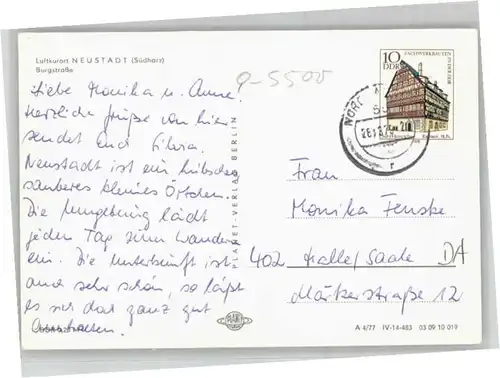 Luftkurort NEUSTADT (Südharz)
Burgstraße
Q-5500
Liebe Monika u. Anne.
Herzliche Grüße von hier
sendet Euch
Neustadt ist ein hübsches
sauberes kleines Örtchen.
Die Umgebung lädt
jeden Tag zum Wandern
ein. Die Unterkunft ist
auch sehr schön, so läßt
es sich das ganz gut
aushalten.
PLANET-VERLAG BERLIN
10
DDR
FACHWERKBAUTEN
IN DER DDR
NORD
Frau
Monika Fenske
402 Halle/Saale DA
Märkerstraße 12
PLANET
A 4/77 IV-14-483 03 09 10 019